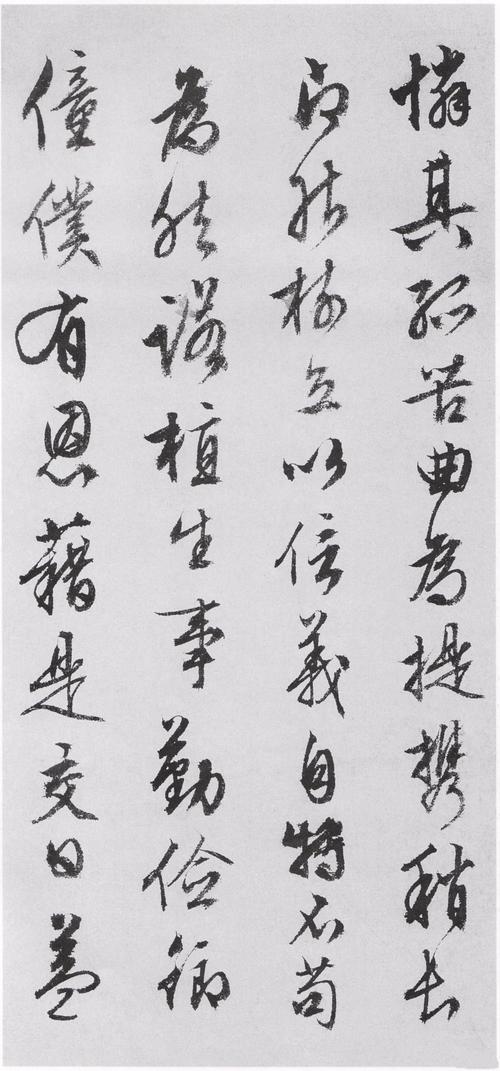 憐其孤苦曲為提攜稍長
即能樹立以信義自持不苟
為然諾植生事勤儉御
僮僕有恩藉是交日益